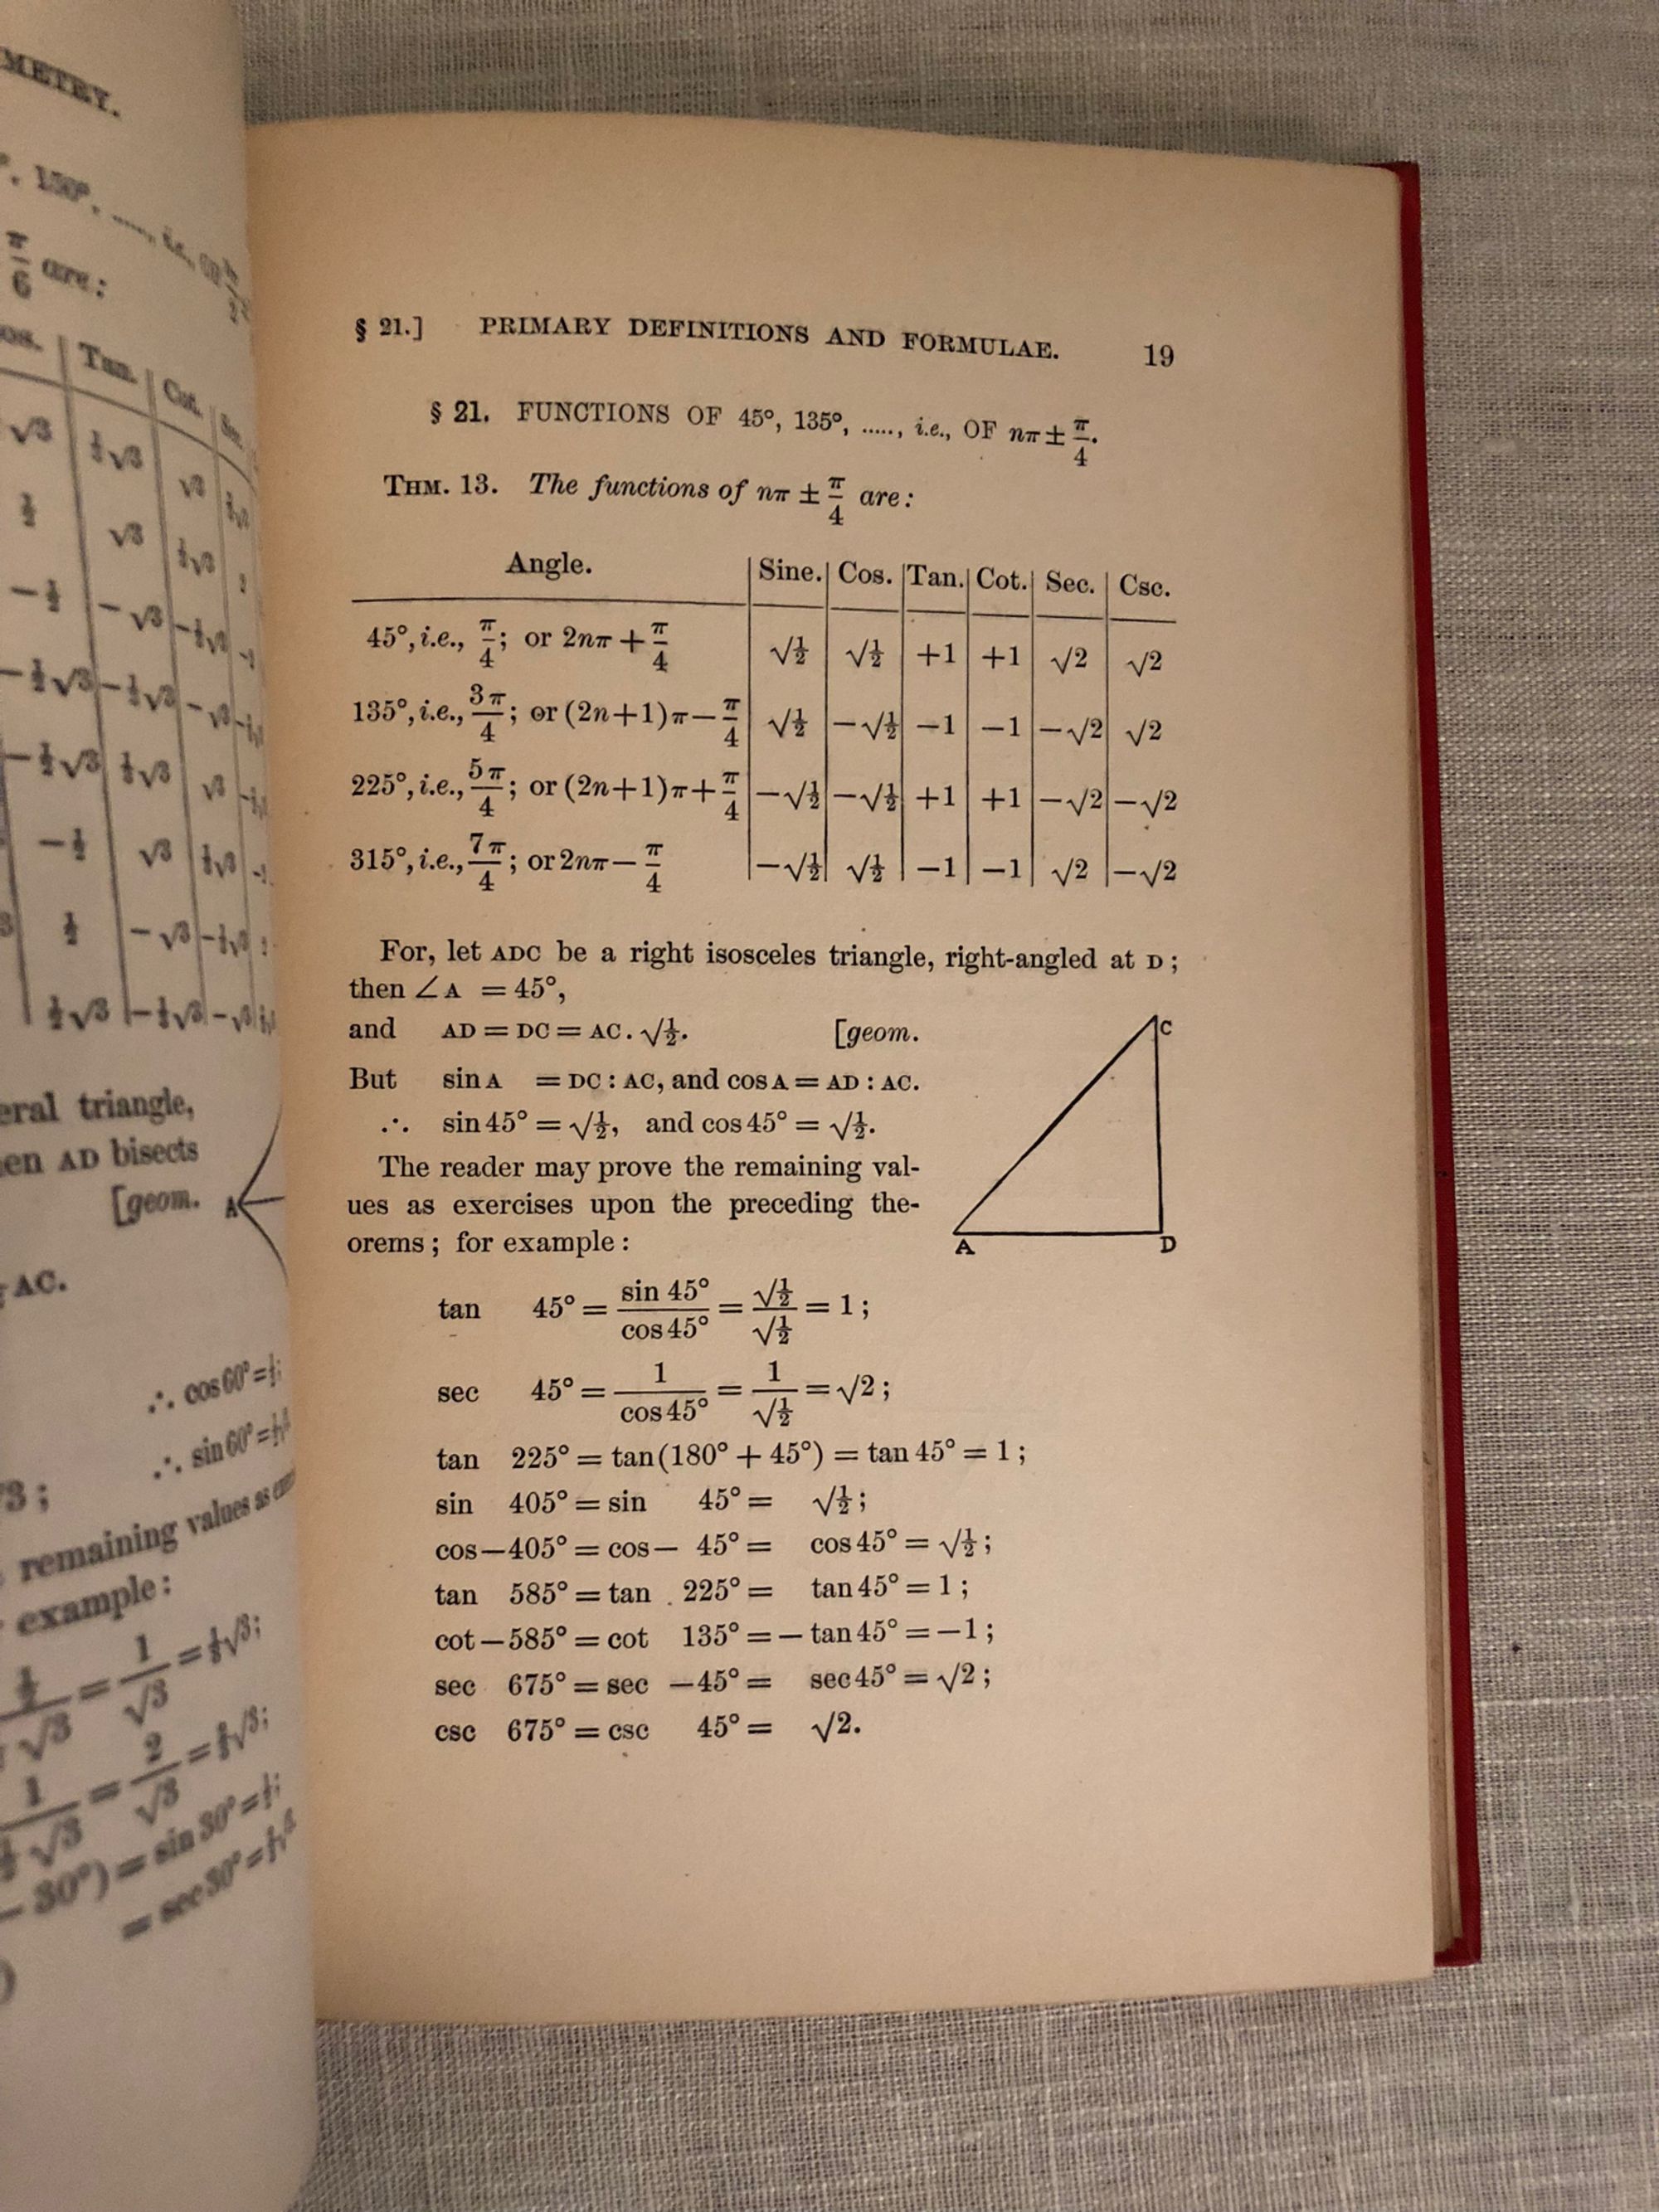 METRY.
150°, ....., i.e.,
π/6 are:
Tan. | Cot.
√3 | ½√3 | √3
½ | √3 | ½√3
-½ | -√3
eral triangle,
en AD bisects
[geom. A
AC.
∴ cos 60° = ½;
∴ sin 60° =
remaining values as
example:
1/√3
2/√3
- 30°) = sin 30° = ½;
= sec 30° =
§ 21.] PRIMARY DEFINITIONS AND FORMULAE. 19
§ 21. FUNCTIONS OF 45°, 135°, ....., i.e., OF nπ ± π/4.
THM. 13. The functions of nπ ± π/4 are:
Angle. | Sine. | Cos. | Tan. | Cot. | Sec. | Csc.
45°, i.e., π/4; or 2nπ + π/4 | √½ | √½ | +1 | +1 | √2 | √2
135°, i.e., 3π/4; or (2n+1)π − π/4 | √½ | −√½ | −1 | −1 | −√2 | √2
225°, i.e., 5π/4; or (2n+1)π + π/4 | −√½ | −√½ | +1 | +1 | −√2 | −√2
315°, i.e., 7π/4; or 2nπ − π/4 | −√½ | √½ | −1 | −1 | √2 | −√2
For, let ADC be a right isosceles triangle, right-angled at D;
then ∠A = 45°,
and AD = DC = AC. √½. [geom.
But sin A = DC : AC, and cos A = AD : AC.
∴ sin 45° = √½, and cos 45° = √½.
The reader may prove the remaining val-
ues as exercises upon the preceding the-
orems; for example:
C
A D
tan 45° = sin 45°/cos 45° = √½/√½ = 1;
sec 45° = 1/cos 45° = 1/√½ = √2;
tan 225° = tan(180° + 45°) = tan 45° = 1;
sin 405° = sin 45° = √½;
cos−405° = cos− 45° = cos 45° = √½;
tan 585° = tan 225° = tan 45° = 1;
cot−585° = cot 135° = − tan 45° = −1;
sec 675° = sec −45° = sec 45° = √2;
csc 675° = csc 45° = √2.